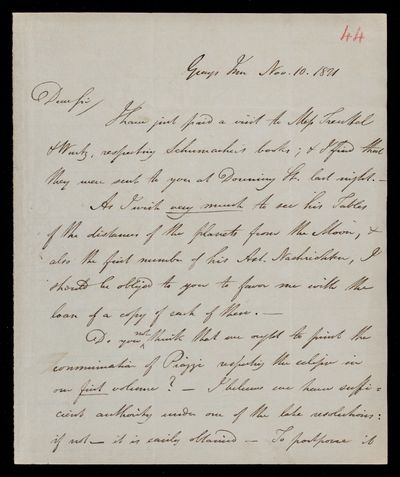 44
Grays Inn Nov. 10. 1821
Dear Sir,
I have just paid a visit to Mess Treuttel
& Wurtz, respecting Schumacher's books; & I find that
they were sent to you at Downing St. last night. —
As I wish very much to see his Tables
of the distances of the planets from the Moon, &
also the first number of his Ast. Nachrichten, I
should be obliged to you to favor me with the
loan of a copy of each of them. —
Do you not think that we ought to print the
communication of Piazzi respecting the eclipse in
our first volume? — I believe we have suffi-
cient authority under one of the late resolutions:
if not — it is easily obtained — To postpone it